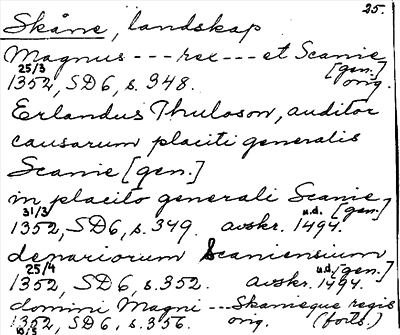 25.
Skåne, landskap
Magnus --- rex --- et Scanie [gen.]
25/3 1352, SD6, s. 348. orig.
Erlandus Thuloson, auditor
causarum placiti generalis
Scanie [gen.]
in placito generali Scanie [gen.]
31/3 1352, SD6, s. 349. avskr. u.d. 1494.
denariorum Scaniensium [gen.]
25/4 1352, SD6, s. 352. avskr. u.d. 1494.
domini Magni --- Skanieque regis
1352, SD6, s. 356. orig. (forts.)